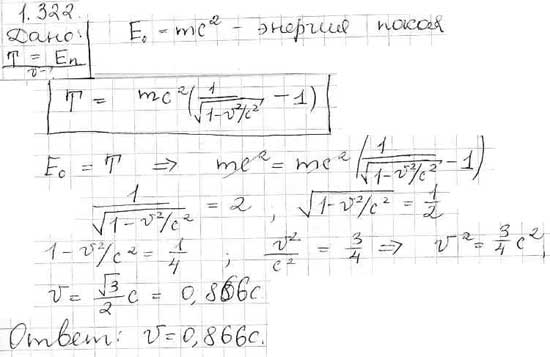 1.322.
Дано: E₀ = mc² - энергия покоя
T = Eп
v - ?
T = mc²(1/√(1-v²/c²) - 1)
E₀ = T ⇒ mc² = mc²(1/√(1-v²/c²) - 1)
1/√(1-v²/c²) = 2, √(1-v²/c²) = 1/2
1-v²/c² = 1/4 ; v²/c² = 3/4 ⇒ v² = 3/4 c²,
v = √3/2 c = 0,866c
Ответ: v=0,866c.